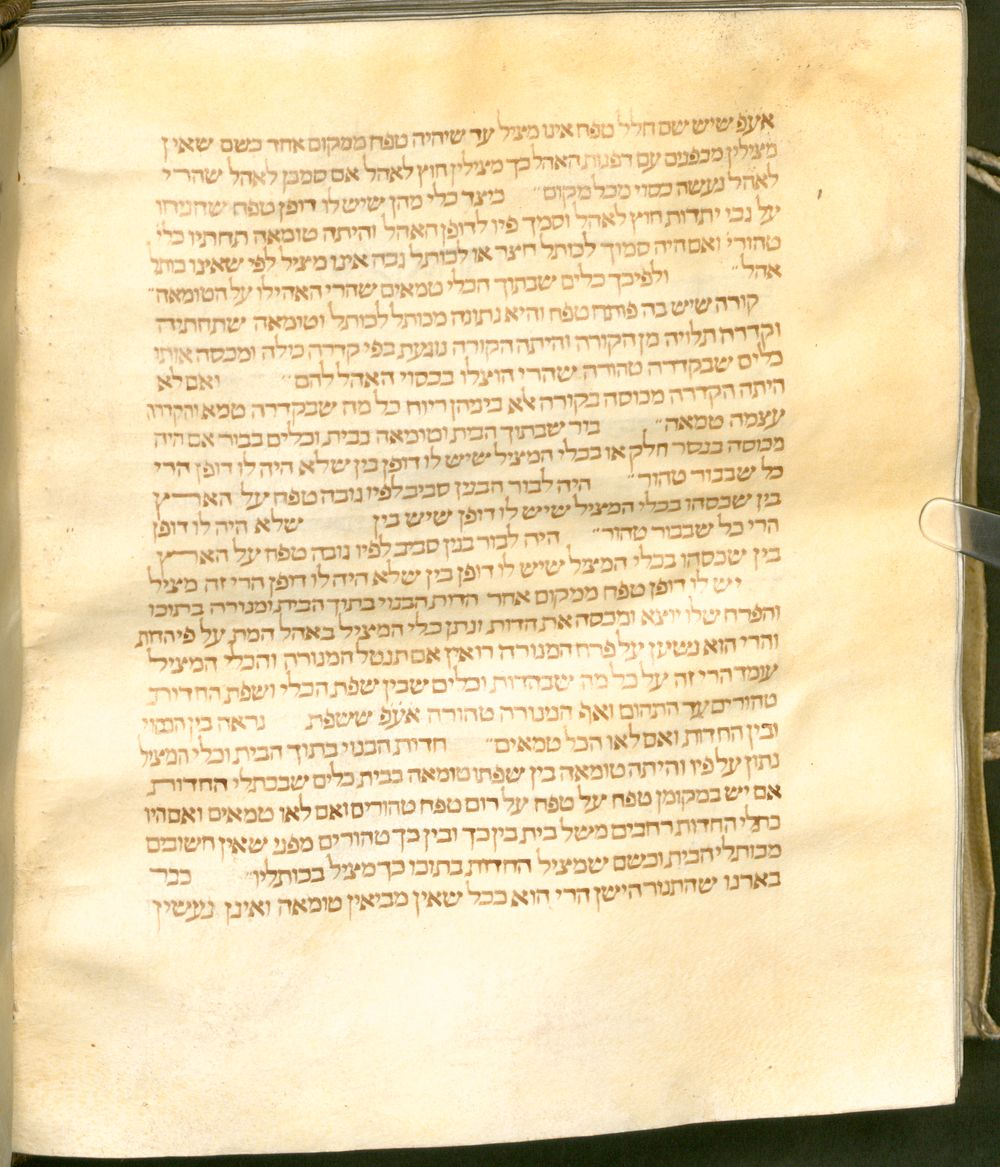 אעפ שיש שם חלל טפח אינו מציל עד שיהיה טפח ממקום אחד כשם שאין
מצילין מבפנים עם דפנות האהל כך מצילין חוץ לאהל אם סמכן לאהל שהרי
לאהל נעשה כסוי מכל מקום״ כיצד כלי מהן שיש לו דופן טפח שהניחו
על גבי יתדות חוץ לאהל וסמך פיו לדופן האהל והיתה טומאה תחתיו כלי׳
טהורי׳ ואם היה סמוך לכותל חצר או לכותל גנה אינו מציל לפי שאינו כותל
אהל״ ולפיכך כלים שבתוך הכלי טמאים שהרי האהילו על הטומאה״
קורה שיש בה פותח טפח והיא נתונה מכותל לכותל וטומאה שתחתיה
וקדרה תלויה מן הקורה והיתה הקורה נוגעת בפי קדרה כולה ומכסה אותו
כלים שבקדרה טהורה שהרי הוצלו בכסוי האהל להם״ ואם לא
היתה הקדרה מכוסה בקורה אלא ביניהן ריוח כל מה שבקדרה טמא והקדרה
עצמה טמאה״ ביר שבתוך הבית וטומאה בבית וכלים בבור אם היה
מכוסה בנסר חלק או בכלי המציל שיש לו דופן בין שלא היה לו דופן הרי
כל שבבור טהור״ היה לבור הבנין סביב לפיו גובה טפח על הארץ
בין שכסהו בכלי המציל שיש לו דופן שיש בין שלא היה לו דופן
הרי כל שבבור טהור״ היה לבור בנין סביב לפיו גובה טפח על הארץ
בין שכסהו בכלי המציל שיש לו דופן בין שלא היה לו דופן הרי זה מציל
יש לו דופן טפח ממקום אחר הדות הבנוי בתוך הבית ומנורה בתוכו
והפרח שלו יוצא ומכסה את הדות ונתן כלי המציל באהל המת על פי הדות
והרי הוא נשען על פרח המנורה רואין אם תנטל המנורה והכלי המציל
עומד הרי זה על כל מה שבהדות וכלים שבין שפת הכלי ושפת החדות
טהורים עד התהום ואף המנורה טהורה אעפ ששפת נראה בין הכסוי
ובין החדות ואם לאו הכל טמאים״ חדות הבנוי בתוך הבית וכלי המציל
נתון על פיו והיתה טומאה בין שפתו טומאה בבית כלים שבכתלי החדות
אם יש במקומן טפח על טפח על רום טפח טהורים ואם לאו טמאים ואם היו
כתלי החדות רחבים משל בית בין כך ובין כך טהורים מפני שאין חשובים
מכותלי הבית וכשם שמציל החדות בתוכו כך מציל בכותליו״ כבר
בארנו שהתנור הישן הרי הוא בכל שאין מביאין טומאה ואינן נעשין